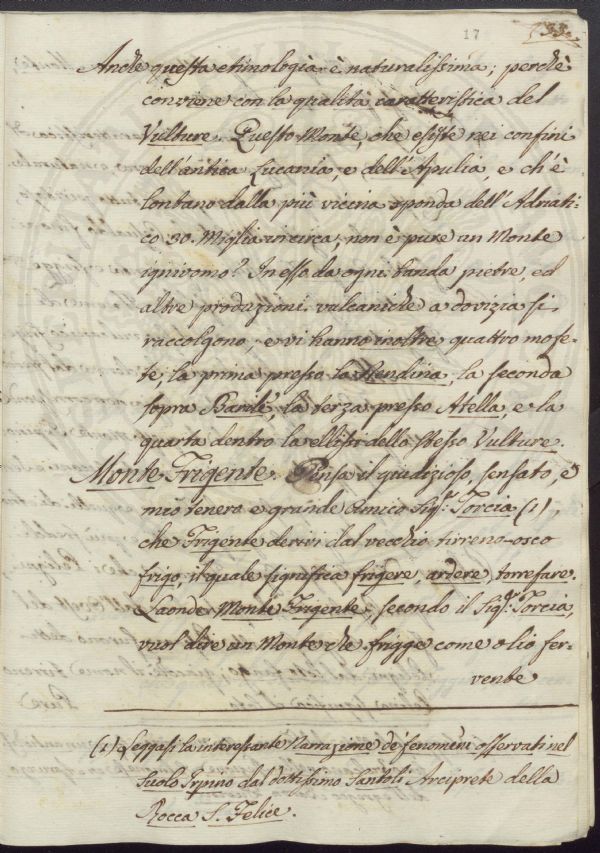 17 33.
Anche questa etimologia è naturalissima; perchè
conviene con la qualità caratteristica del
Vulture. Questo Monte, che esiste nei confini
dell'antica Lucania, e dell'Apulia, e ch'è
lontano dalla più vicina sponda dell'Adriati-
co 30. Miglia in circa, non è pure un Monte
ignivomo? In esso da ogni banda pietre, ed
altre produzioni vulcaniche a dovizia si
raccolgono, e vi hanno inoltre quattro mofe-
te, la prima presso la Rendina, la seconda
sopra Barile, la terza presso Atella, e la
quarta dentro la ellissi dello stesso Vulture.
Monte Frigente. Pensa il giudizioso, sensato, e
mio tenero e grande Amico Sig.r Torcia (1),
che Frigente derivi dal vecchio tirreno-osco
frigo, il quale significa frigere, ardere, torrefare.
Laonde Monte Frigente, secondo il Sig.r Torcia,
vuol dire un Monte che frigge come olio fer-
vente
(1) Leggasi la interessante Narrazione de' fenomeni osservati nel
Suolo Irpino dal dottissimo Santoli Arciprete della
Rocca S. Felice.